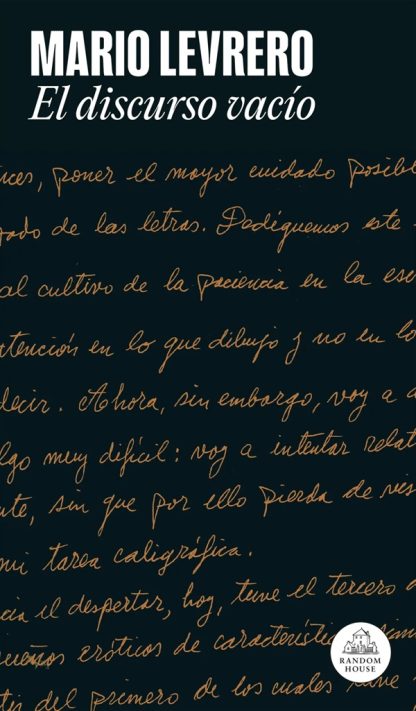 MARIO LEVRERO
El discurso vacío
nces, poner el mayor cuidado posible
zado de las letras. Dediquemos este
al cultivo de la paciencia en la esc
tención en lo que dibujo y no en lo
decir. Ahora, sin embargo, voy a
lgo muy difícil: voy a intentar relat
nte, sin que por ello pierda de vis
mi tarea caligráfica.
cia el despertar, hoy, tuve el tercero
sueños eróticos de característic
del primero de los cuales tuve
RANDOM
HOUSE